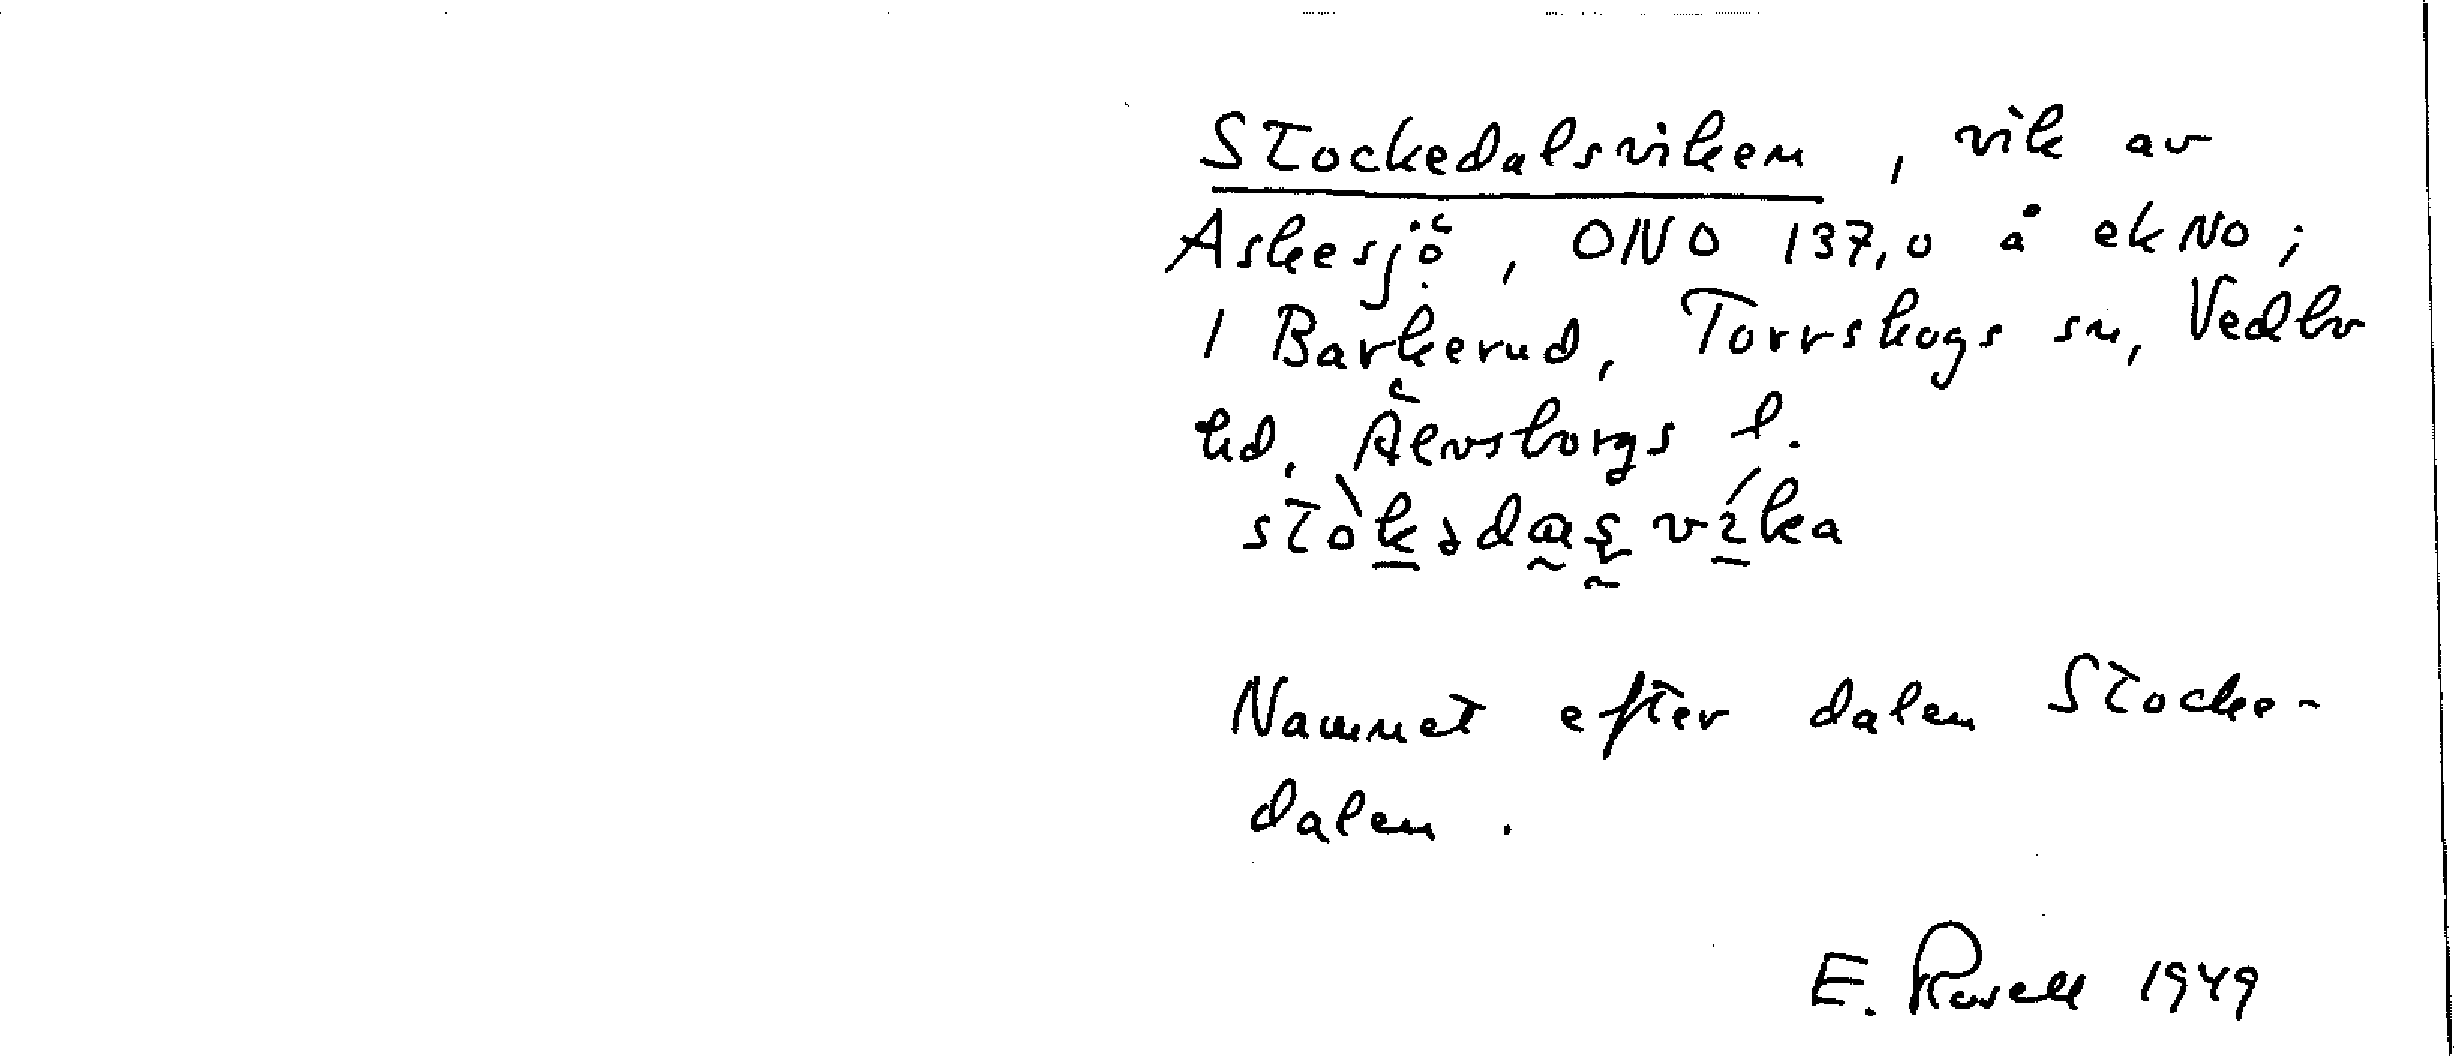 Stockedalsviken, vik av
Askesjö, ONO 137,0 å ek NO;
i Barkerud, Torrskogs sn, Vedbo
hd, Älvsborgs l.
Namnet efter dalen Stocke-
dalen.
E. Rosell 1949